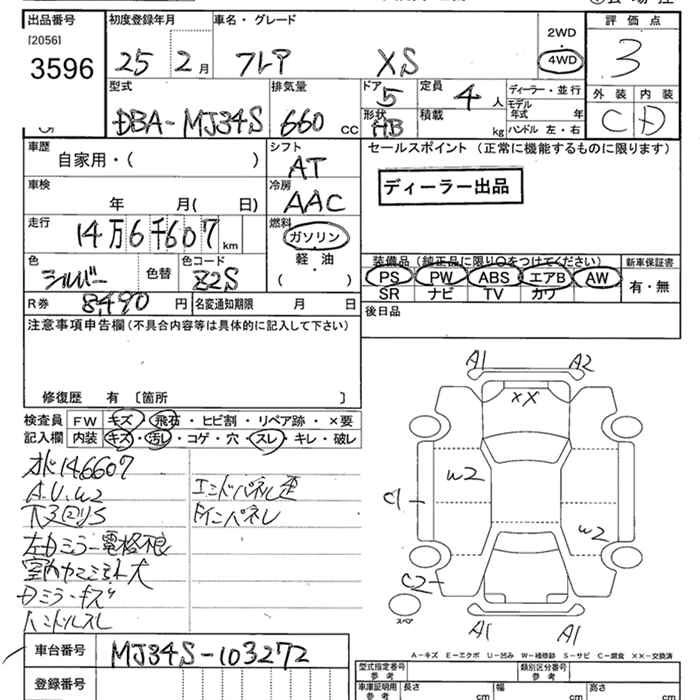 出品番号
[2056]
3596
初度登録年月
25 2月
車名・グレード
フレア XS
2WD
4WD
評価点
3
型式
DBA-MJ34S
排気量
660 cc
ドア
5
形状
HB
定員
4人
積載
kg
ディーラー・並行
モデル年式 年
ハンドル 左・右
外装
C
内装
D
車歴
自家用・( )
シフト
AT
セールスポイント (正常に機能するものに限ります)
ディーラー出品
車検
年 月( 日)
冷房
AAC
走行
14万6千607km
燃料
ガソリン
軽油
( )
色
シルバー
色替
色コード
Z2S
装備品 (純正品に限り○をつけてください)
PS PW ABS エアB AW
SR ナビ TV カワ
新車保証書
有・無
R券 8,490円
名変通知期限 月 日
後日品
注意事項申告欄(不具合内容等は具体的に記入して下さい)
修復歴 有 〔箇所 〕
検査員記入欄
FW キズ・飛石・ヒビ割・リペア跡・×要
内装 キズ・汚レ・コゲ・穴・スレ・キレ・破レ
オド146607
A.U.W2
下回りS
左Dミラー電格不良
Dミラーキズ
ハンドルスレ
エンドパネル歪
A1 A2
XX
W2
C1
W2
C2
スペア
A1 A1
A-キズ E-エクボ U-凹み W-補修跡 S-サビ C-腐食 XX-交換済
車台番号 MJ34S-103272
登録番号
型式指定番号 参考
類別区分番号 参考
車庫証明用 参考
長さ cm
幅 cm
高さ cm